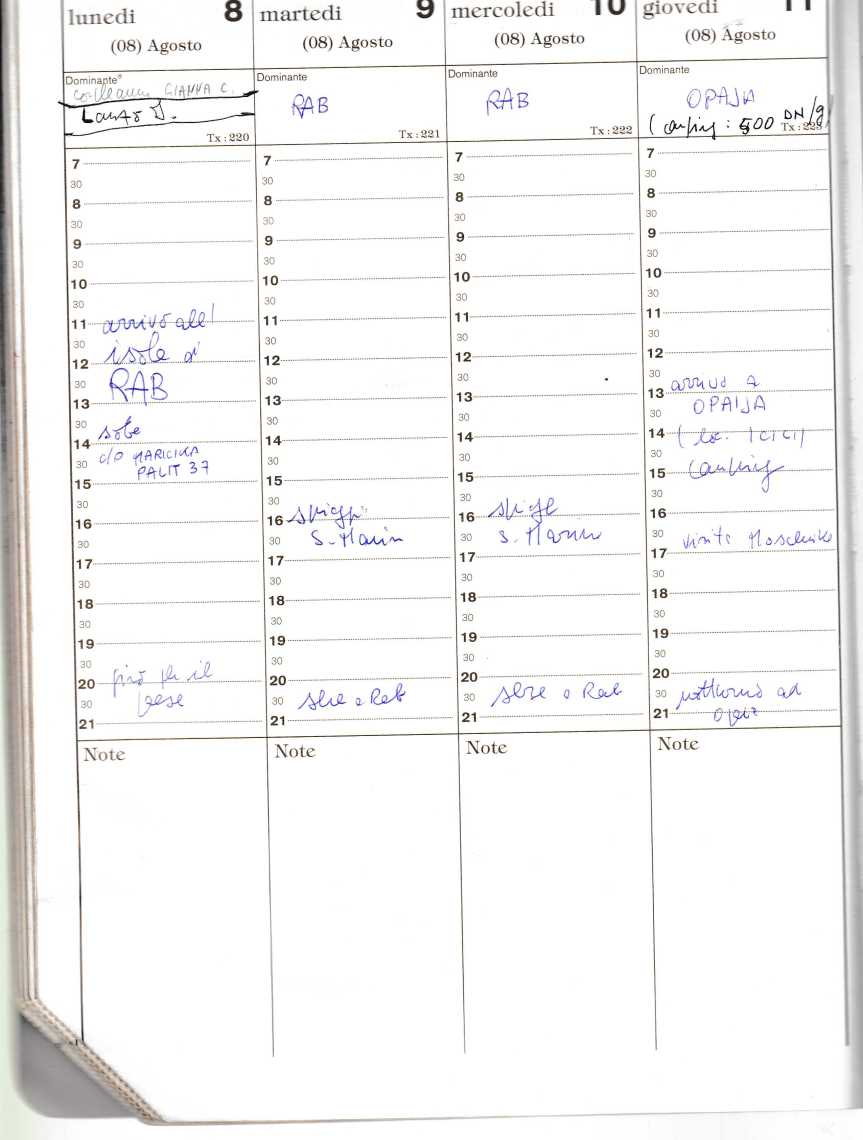 lunedi 8
(08) Agosto
Dominante
GIANNA C.
Tx : 220
7
30
8
30
9
30
10
30
11 arrivo all'
30 isola di
12
30 RAB
13
30 sobe
14 c/o MARICIKA
30 PALIT 37
15
30
16
30
17
30
18
30
19
30
20 giro per il
30 paese
21
Note
martedi 9
(08) Agosto
Dominante
RAB
Tx : 221
7
30
8
30
9
30
10
30
11
30
12
30
13
30
14
30
15
30
16 spiaggia
30 S. Marin
17
30
18
30
19
30
20
30 a Rab
21
Note
mercoledi 10
(08) Agosto
Dominante
RAB
Tx : 222
7
30
8
30
9
30
10
30
11
30
12
30
13
30
14
30
15
30
16
30 S.
17
30
18
30
19
30
20
30 a Rab
21
Note
giovedi 11
(08) Agosto
Dominante
OPAJA
(camping : 500 DN/g)
7
30
8
30
9
30
10
30
11
30
12
30
13 arrivo a
30 OPAIJA
14 (loc. ICICI)
30
15 camping
30
16
30 visita
17
30
18
30
19
30
20
30 notturno ad
21
Note